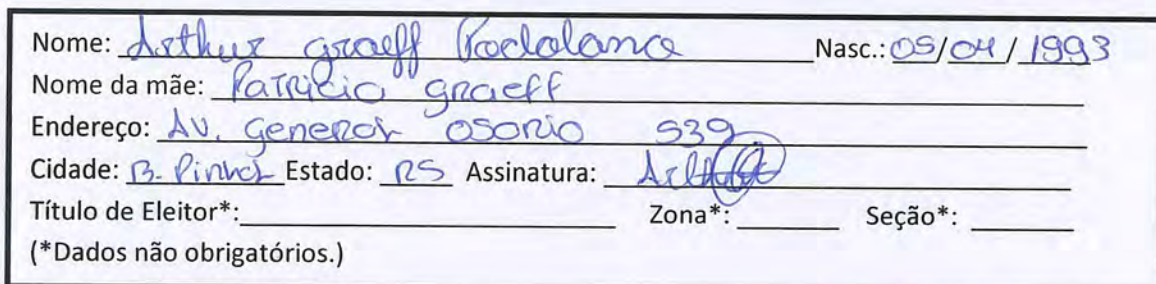 Nome: Arthur Graeff Nasc.: 05/04/1993
Nome da mãe: Patricia graeff
Endereço: AV. General OSORIO 539
Cidade: B. Pinhal Estado: RS Assinatura:
Título de Eleitor*: Zona*: Seção*:
(*Dados não obrigatórios.)